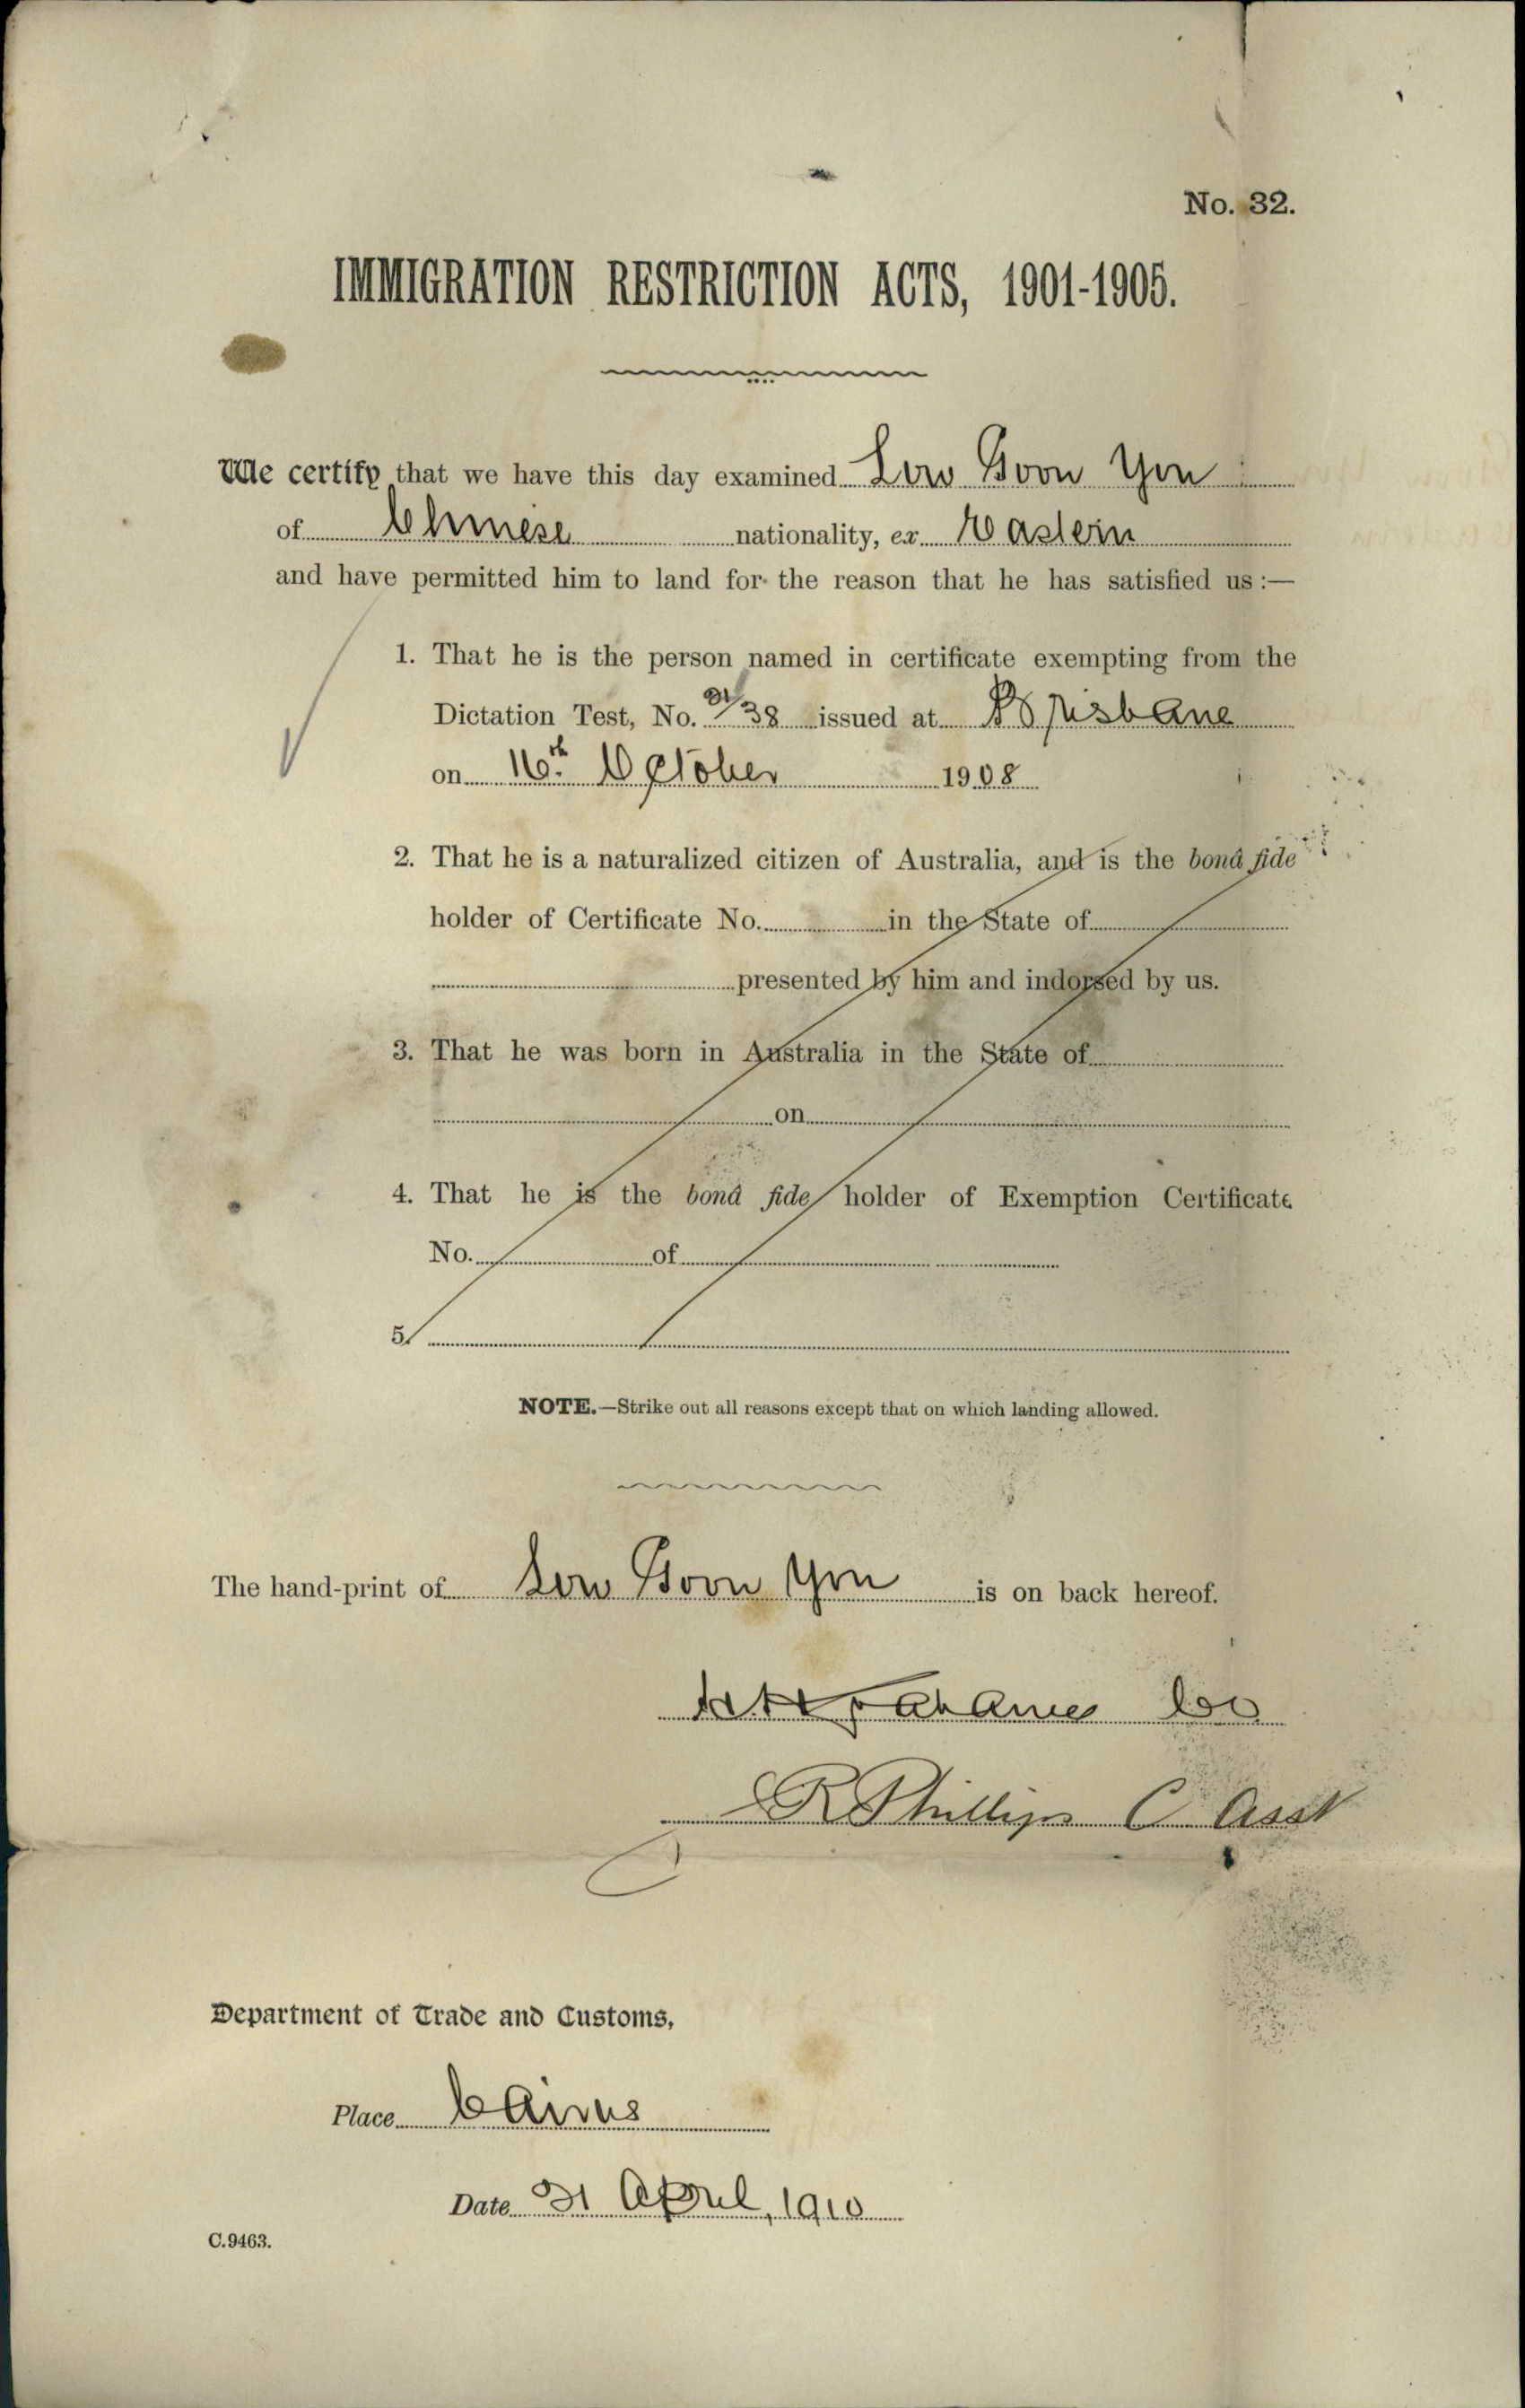 No. 32.
IMMIGRATION RESTRICTION ACTS, 1901-1905.
We certify that we have this day examined Low Goon Yon
of Chinese nationality, ex Eastern
and have permitted him to land for the reason that he has satisfied us :—
1. That he is the person named in certificate exempting from the
Dictation Test, No. 21/38 issued at Brisbane
on 16th October 1908
2. That he is a naturalized citizen of Australia, and is the bonâ fide
holder of Certificate No. in the State of
presented by him and indorsed by us.
3. That he was born in Australia in the State of
on
4. That he is the bonâ fide holder of Exemption Certificate
No. of
5.
NOTE.—Strike out all reasons except that on which landing allowed.
The hand-print of Low Goon Yon is on back hereof.
R Phillips C Asst
Department of Trade and Customs,
Place Cairns
Date 21 April, 1910
C.9463.